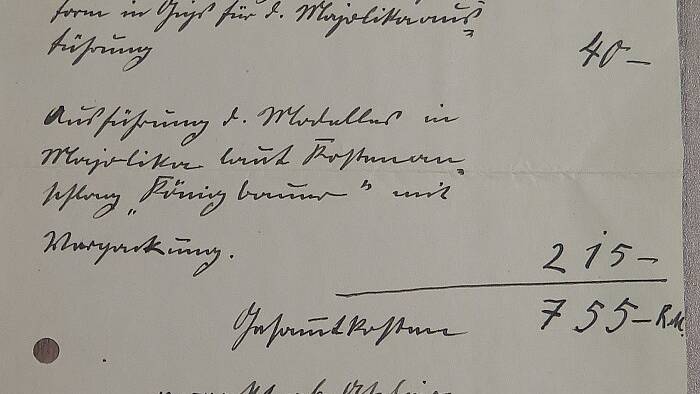 form in Gips für d. Majolikaaus=
führung 40.-
Ausführung d. Modelles in
Majolika laut Kostenan=
schlag „Königbauer" mit
Verpackung. 215-
Gesamtkosten 755- R.M.